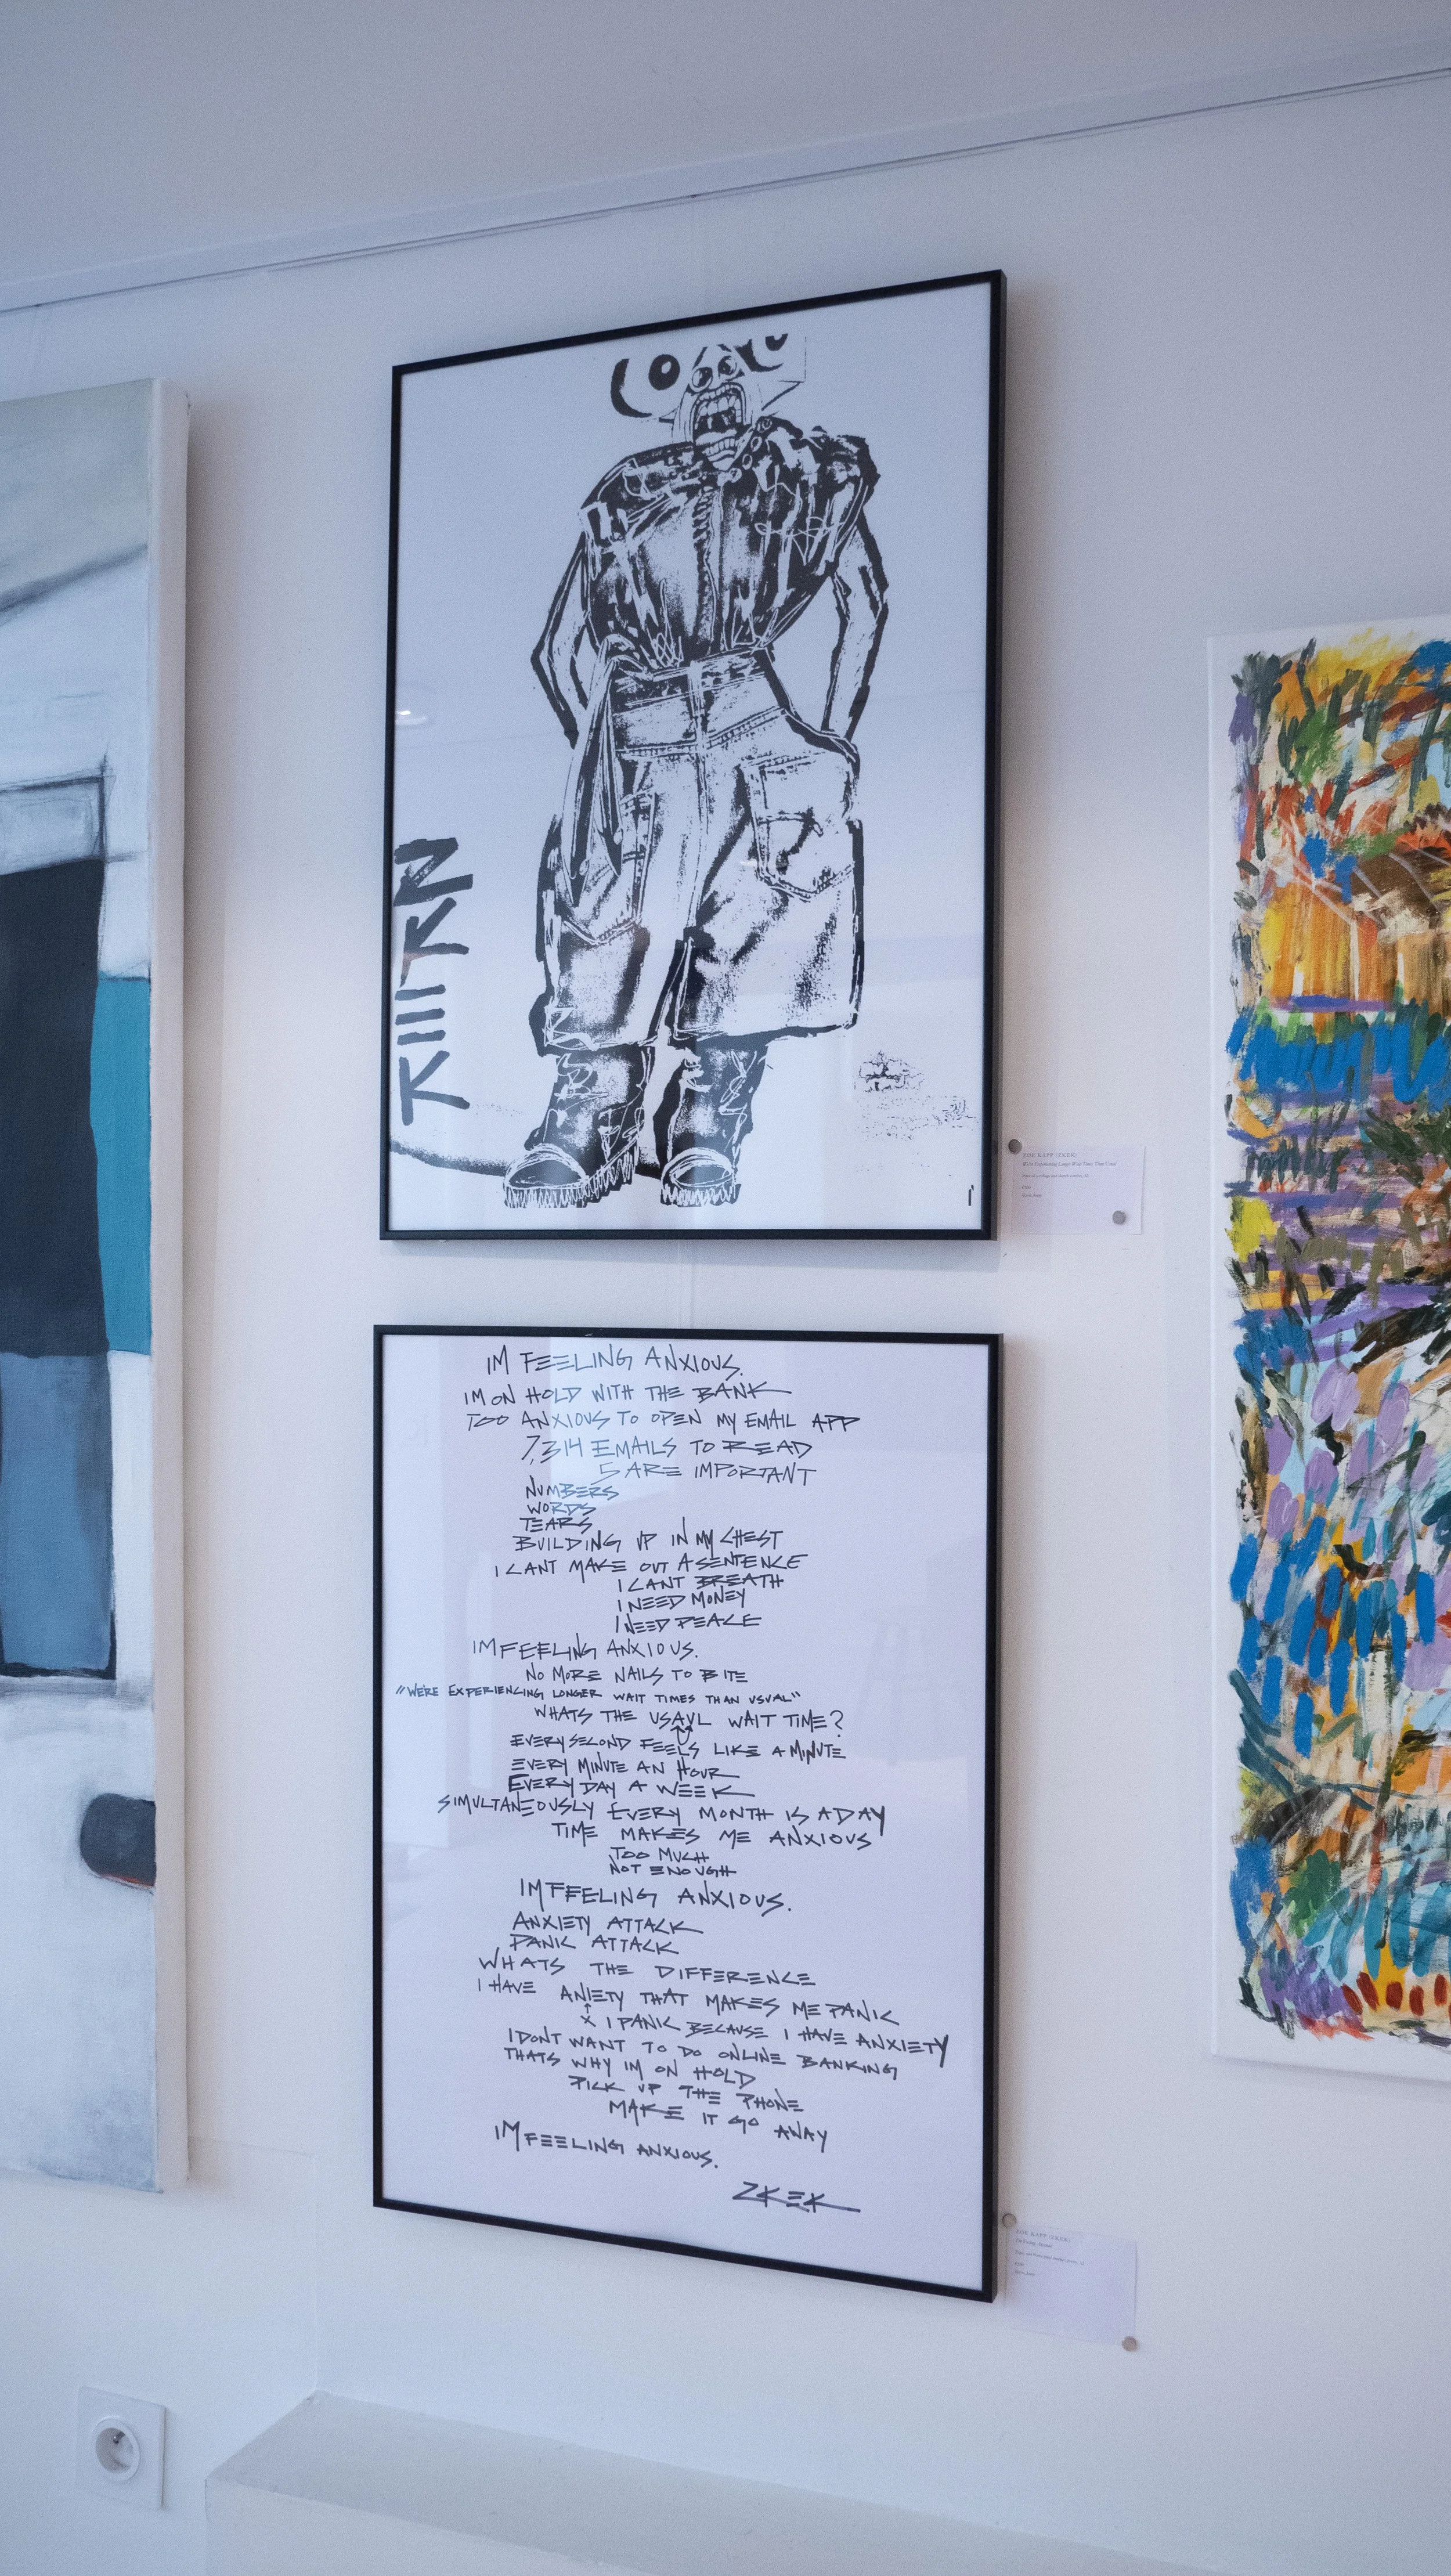 ZOE KAPP (ZKEK)
We're Experiencing Longer Wait Times Than Usual
IM FEELING ANXIOUS.
IM ON HOLD WITH THE BANK
TOO ANXIOUS TO OPEN MY EMAIL APP
7,314 EMAILS TO READ
5 ARE IMPORTANT
NUMBERS
WORDS
TEARS
BUILDING UP IN MY CHEST
I CANT MAKE OUT A SENTENCE
I CANT BREATH
I NEED MONEY
I NEED PEACE
IM FEELING ANXIOUS.
NO MORE NAILS TO BITE
"WE'RE EXPERIENCING LONGER WAIT TIMES THAN USUAL"
WHATS THE USAUL WAIT TIME?
EVERY SECOND FEELS LIKE A MINUTE
EVERY MINUTE AN HOUR
EVERY DAY A WEEK
SIMULTANEOUSLY EVERY MONTH IS A DAY
TIME MAKES ME ANXIOUS
TOO MUCH
NOT ENOUGH
IM FEELING ANXIOUS.
ANXIETY ATTACK
PANIC ATTACK
WHATS THE DIFFERENCE
I HAVE ANIETY THAT MAKES ME PANIC
X I PANIC BECAUSE I HAVE ANXIETY
I DONT WANT TO DO ONLINE BANKING
THATS WHY IM ON HOLD
PICK UP THE PHONE
MAKE IT GO AWAY
IM FEELING ANXIOUS.
ZKEK
ZOE KAPP (ZKEK)
I'm Feeling Anxious